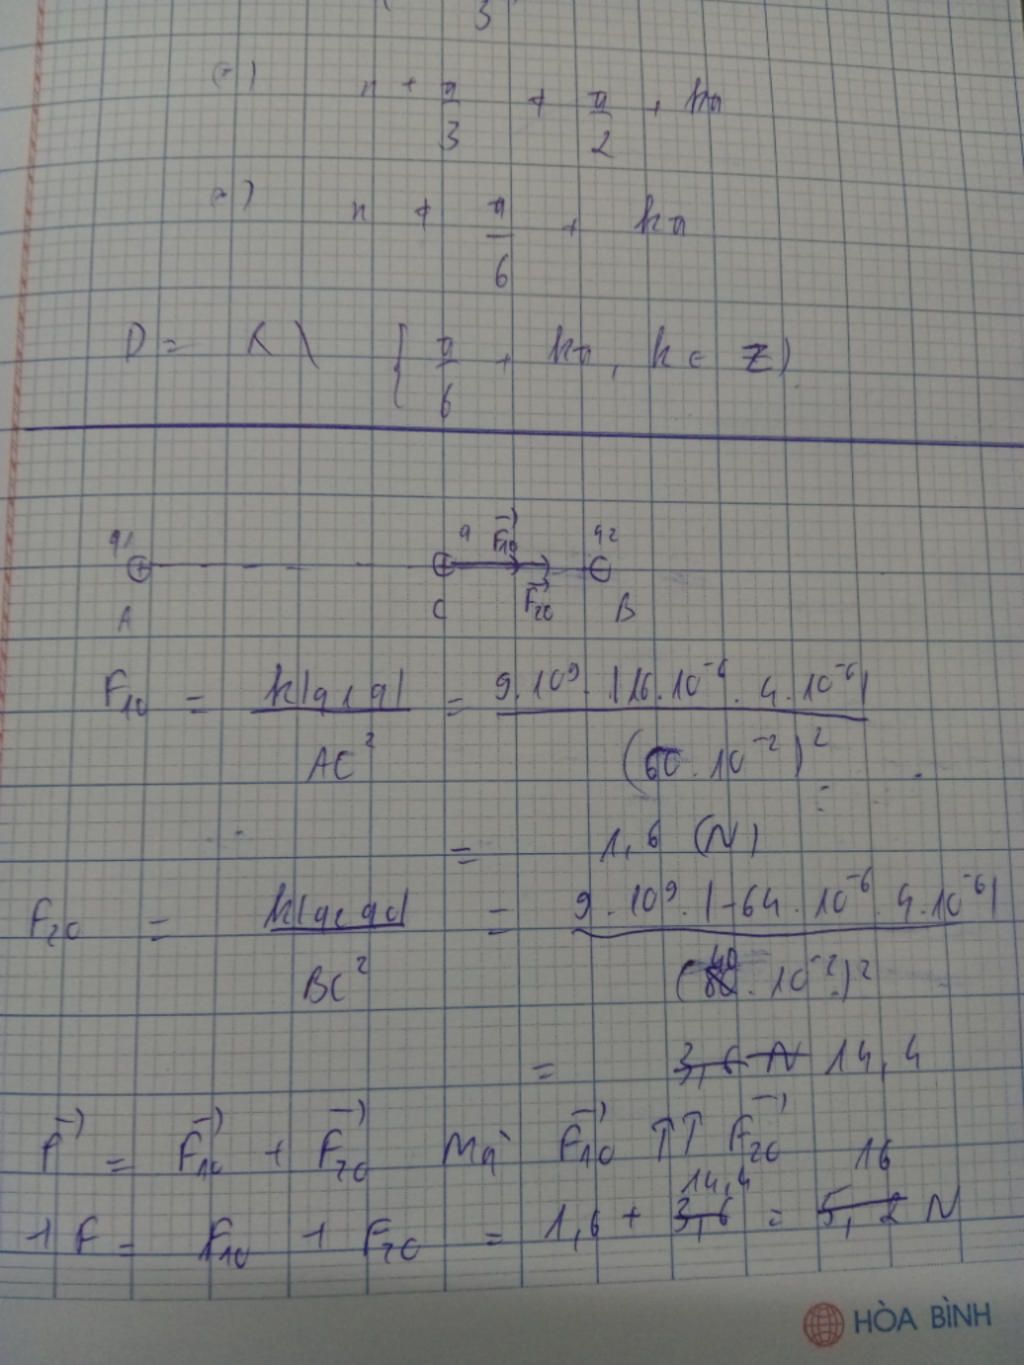 3
n + π/3 ≠ π/2 + kπ
n ≠ π/6 + kπ
D = R \ { π/6 + kπ, k ∈ Z }
q1 q F10 q2
A C F20 B
F10 = k|q1q|/AC² = 9.10⁹.|16.10⁻⁶.4.10⁻⁶|/(60.10⁻²)²
= 1,6 (N)
F20 = k|q2q0|/BC² = 9.10⁹.|-64.10⁻⁶.4.10⁻⁶|/(40.10⁻²)²
= 3,6 N 14,4
F = F10 + F20 Mà F10 ↑↑ F20
14,4 16
+ F = F10 + F20 = 1,6 + 3,6 = 5,2 N
HÒA BÌNH